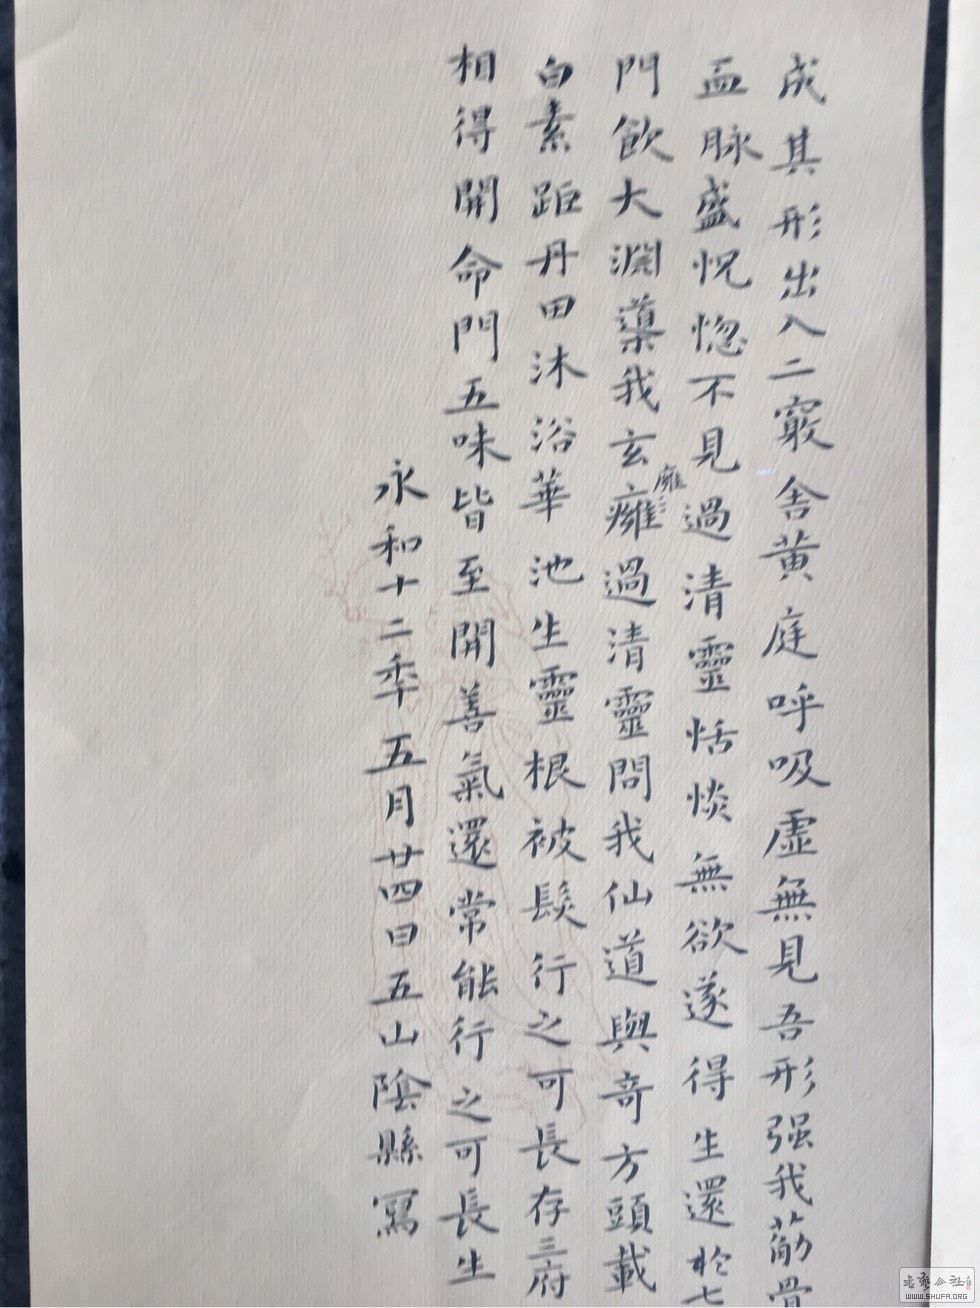 成其形出入二竅舍黄庭呼吸虚無見吾形强我筋骨
血脉盛怳惚不見過清靈恬惔無欲遂得生還於七
門飲大淵䆃我玄癰過清靈問我仙道與竒方頭載
廱
白素距丹田沐浴華池生靈根被髮行之可長存三府
相得開命門五味皆至開善氣還常能行之可長生
永和十二秊五月廿四日五山陰縣寫
WWW.SHUFA.ORG